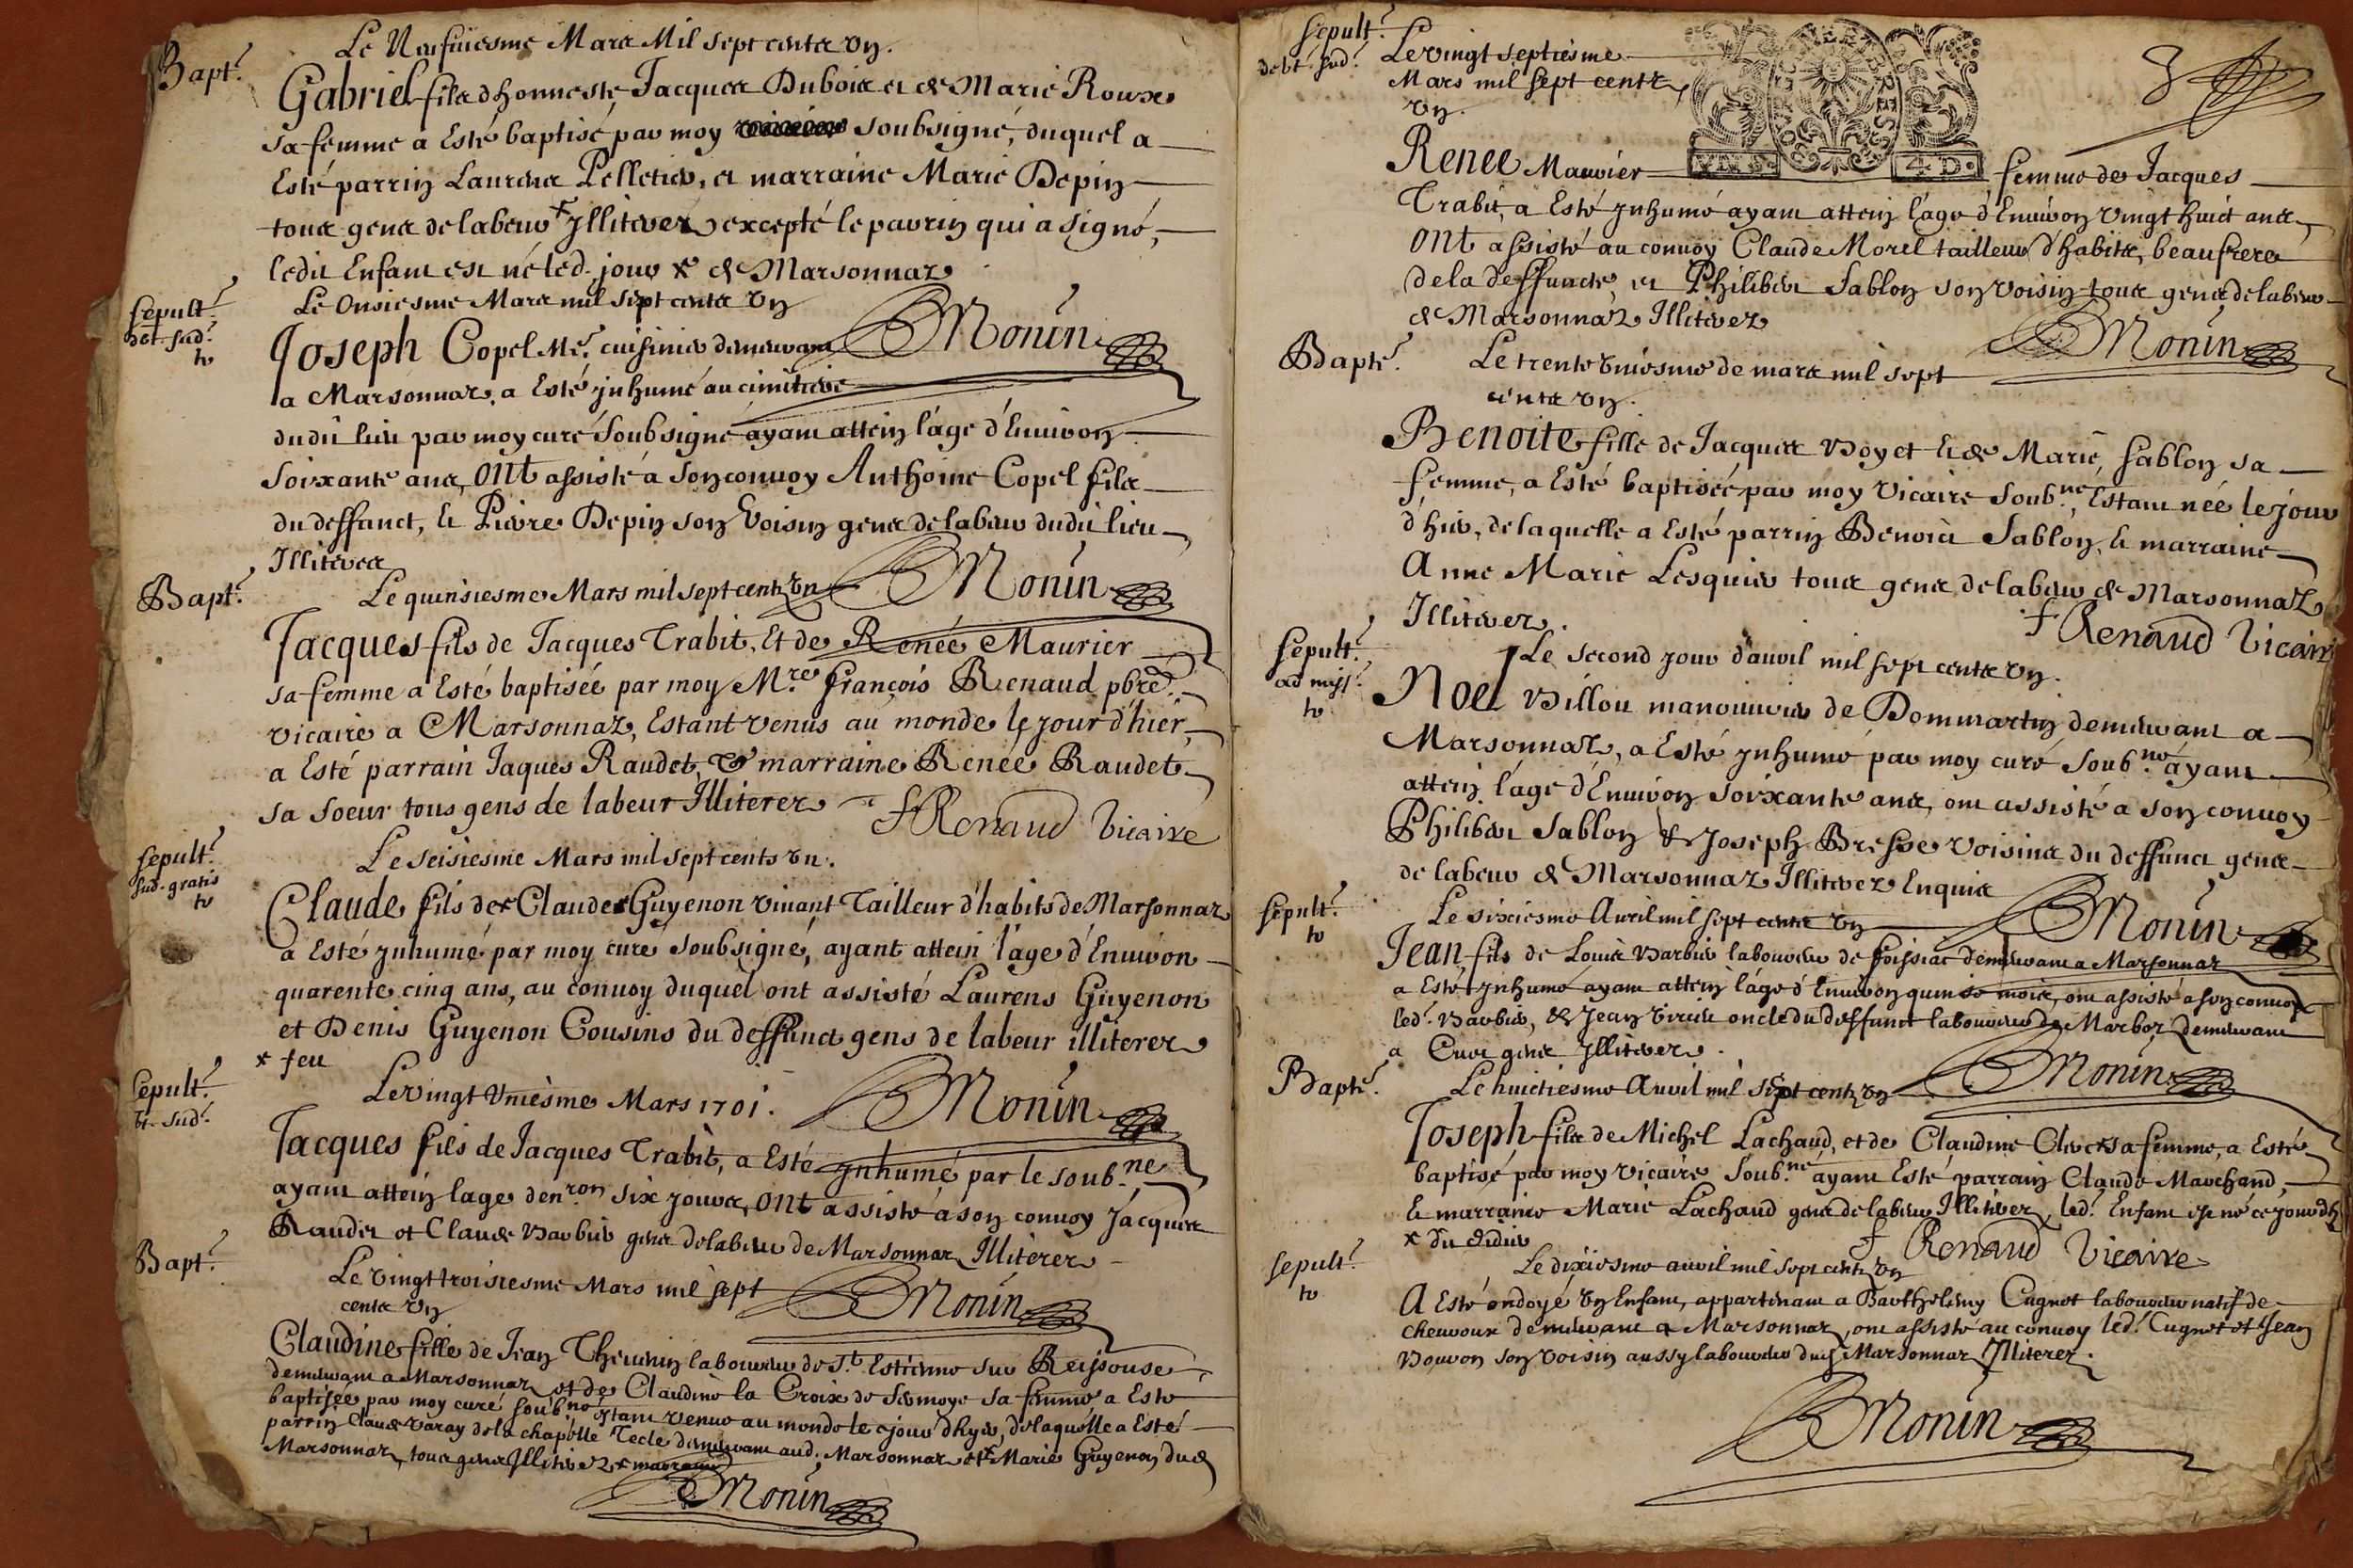 Bapt.e
Le Neufuiesme Mars Mil sept cents vn.
Gabriel fils d'honneste Jacques Dubois et de Marie Roux
sa femme a Esté baptisé par moy soubsigné, duquel a
Esté parrin Laurens Pelletier, et marraine Marie Depin
tous gens de labeur Illiterez excepté le parrin qui a signé,
ledit Enfant est né led. jour x de Marsonnaz
Sepult.e
Le Onsiesme Mars mil sept cents vn
Joseph Copel Me. cuisinier demeurant
a Marsonnaz, a Esté jnhumé au cimitiere
dudit lieu par moy curé soubsigné ayant attein l'age d'Enuiron
soixante ans, ont assisté a son conuoy Anthoine Copel fils
du deffunct, et Pierre Depin son voisin gens de labeur dudit lieu
Illiterez
BMonin
Bapt.e
Le quinsiesme Mars mil sept cents vn
BMonin
Jacques fils de Jacques Trabit, Et de Renée Maurier
sa femme a Esté baptisée par moy M.re françois Renaud pbre.
vicaire a Marsonnaz, Estant venus au monde le jour d'hier,
a Esté parrain Jaques Raudet, & marraine Renée Raudet
sa soeur tous gens de labeur Illiterez
fRenaud Vicaire
Sepult.e
sud. gratis
Le seisiesme Mars mil sept cents vn.
Claude fils de x Claude Guyenon viuant Tailleur d'habits de Marsonnaz
a Esté jnhumé par moy curé soubsigné, ayant attein l'age d'Enuiron
quarente cinq ans, au conuoy duquel ont assisté Laurens Guyenon
et Denis Guyenon Cousins du deffunct gens de labeur illiterez
x feu
Sepult.e
Le vingt vniésme Mars 1701.
BMonin
Jacques fils de Jacques Trabit, a Esté jnhumé par le soub.ne
ayant attein lage denron six jours, ont assisté a son conuoy Jacques
Raudet et Claude Barbier gens de labeur de Marsonnaz Illiterez
Bapt.e
Le vingt troisiesme Mars mil sept
cents vn
BMonin
Claudine fille de Jean Theuenin laboureur de St. Estienne sur Reissouse
demeurant a Marsonnaz et de Claudine la Croix de Sermoye sa femme a Esté
baptisée par moy curé soub.né estant venue au monde le jour d'hyer, de laquelle a Esté
parrin Claude Varay de la chapelle Tecle demeurant aud. Marsonnaz et x Marie Guyenon dud
Marsonnaz, tous gens Illiterez x marraine
BMonin
Sepult.e
Le vingt septiésme
Mars mil sept cents
vn.
4 D.
Renee Mauvier femme de Jacques
Trabit, a Esté jnhumé ayant attein l'age d'Enuiron vingt huict ans,
ont assisté au conuoy Claude Morel tailleur d'habits, beau frere
de la deffuncte, et Philibert Sablon son voisin tous gens de labeur
de Marsonnaz Illiterez
BMonin
Bapte.
Le trente vniesme de mars mil sept
cents vn.
Benoite fille de Jacques Boyet et de Marie Sablon sa
femme, a Esté baptisée par moy Vicaire soub.ne, Estant née le jour
d'hier, de laquelle a Esté parrin Benoit Sablon, & marraine
Anne Marie Lesquier tous gens de labeur de Marsonnaz
Illiterez.
f Renaud Vicaire
Sepult.e
Le second jour d'auril mil sept cents vn.
Noel Billou manouurier de Dommartin demeurant a
Marsonnaz, a Esté jnhumé par moy curé soub.né ayant
attein l'age d'Enuiron soixante ans, ont assisté a son conuoy
Philibert Sablon & Joseph Bresse voisins du deffunct gens
de labeur de Marsonnaz Illiterez Enquis
Sepult.e
Le sixiesme Auril mil sept cents vn
BMonin
Jean fils de Louis Barbier laboureur de foissiac demeurant a Marsonnaz
a Esté jnhumé ayant attein l'age d'Enuiron quinse mois, ont assisté a son conuoy
led. Barbier, & Jean oncle du deffunct laboureur de Marboz demeurant
a Curt gens Illiterez.
Bapte.
Le huictiesme Auril mil sept cents vn
BMonin
Joseph fils de Michel Lachaud, et de Claudine Clerc sa femme, a Esté
baptisé par moy vicaire soub.né ayant Esté parrain Claude Marchand,
& marraine Marie Lachaud gens de labeur Illiterez, led. Enfant est né ce jour dh
f Renaud Vicaire
Sepult.e
Le dixiesme auril mil sept cents vn
A Esté ondoyé vn Enfant, appartenant a Barthelemy Cugnet laboureur natif de
cheuroux demeurant a Marsonnaz, ont assisté au conuoy led. Cugnet et Jean
Bouuon son voisin aussy laboureur dud. Marsonnaz Illiterez.
BMonin